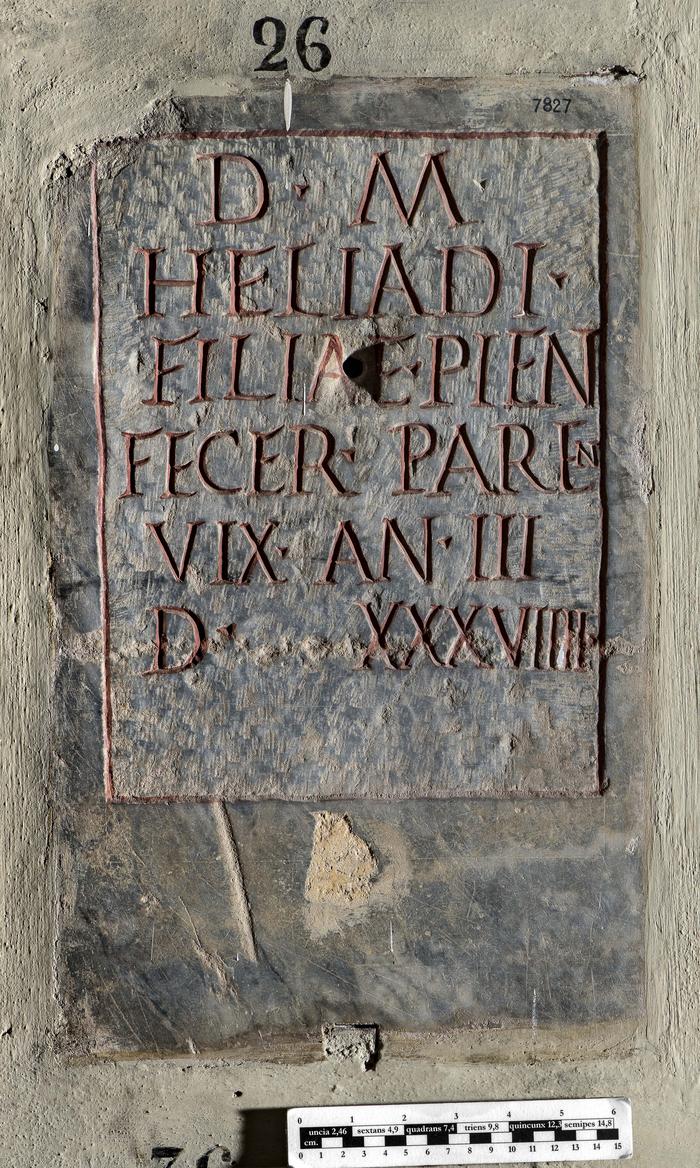 26
7827
D · M ·
HELIADI ·
FILIAE · PIEN
FECER · PAREN
VIX · AN · III
D · XXXVIIII
0 1 2 3 4 5 6
uncia 2,46 sextans 4,9 quadrans 7,4 triens 9,8 quincunx 12,3 semipes 14,8
cm.
0 1 2 3 4 5 6 7 8 9 10 11 12 13 14 15